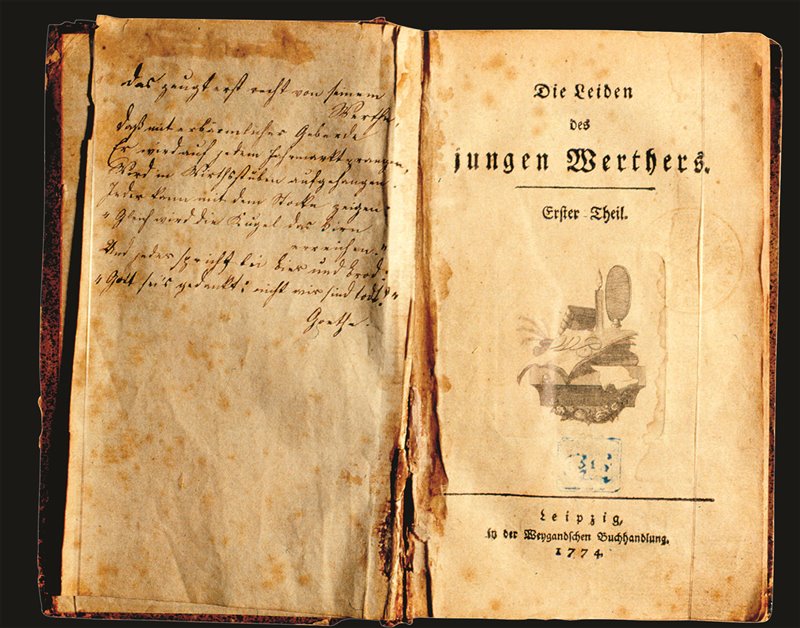 das zeugt erst recht von seinem
Werthe,
daß mit erbärmlicher Geberde
Er wird auf jedem Jahrmarkt prangen,
Wird in Wirthsstuben aufgehangen.
Jeder kann mit dem Stocke zeigen:
"Gleich wird die Kugel das Hirn
erreichen."
Und jedes spricht bei Bier und Brod:
"Gott sei's gedankt: nicht wir sind todt!"
Goethe.
Die Leiden
des
jungen Werthers.
Erster Theil.
Leipzig,
in der Weygandschen Buchhandlung.
1774.